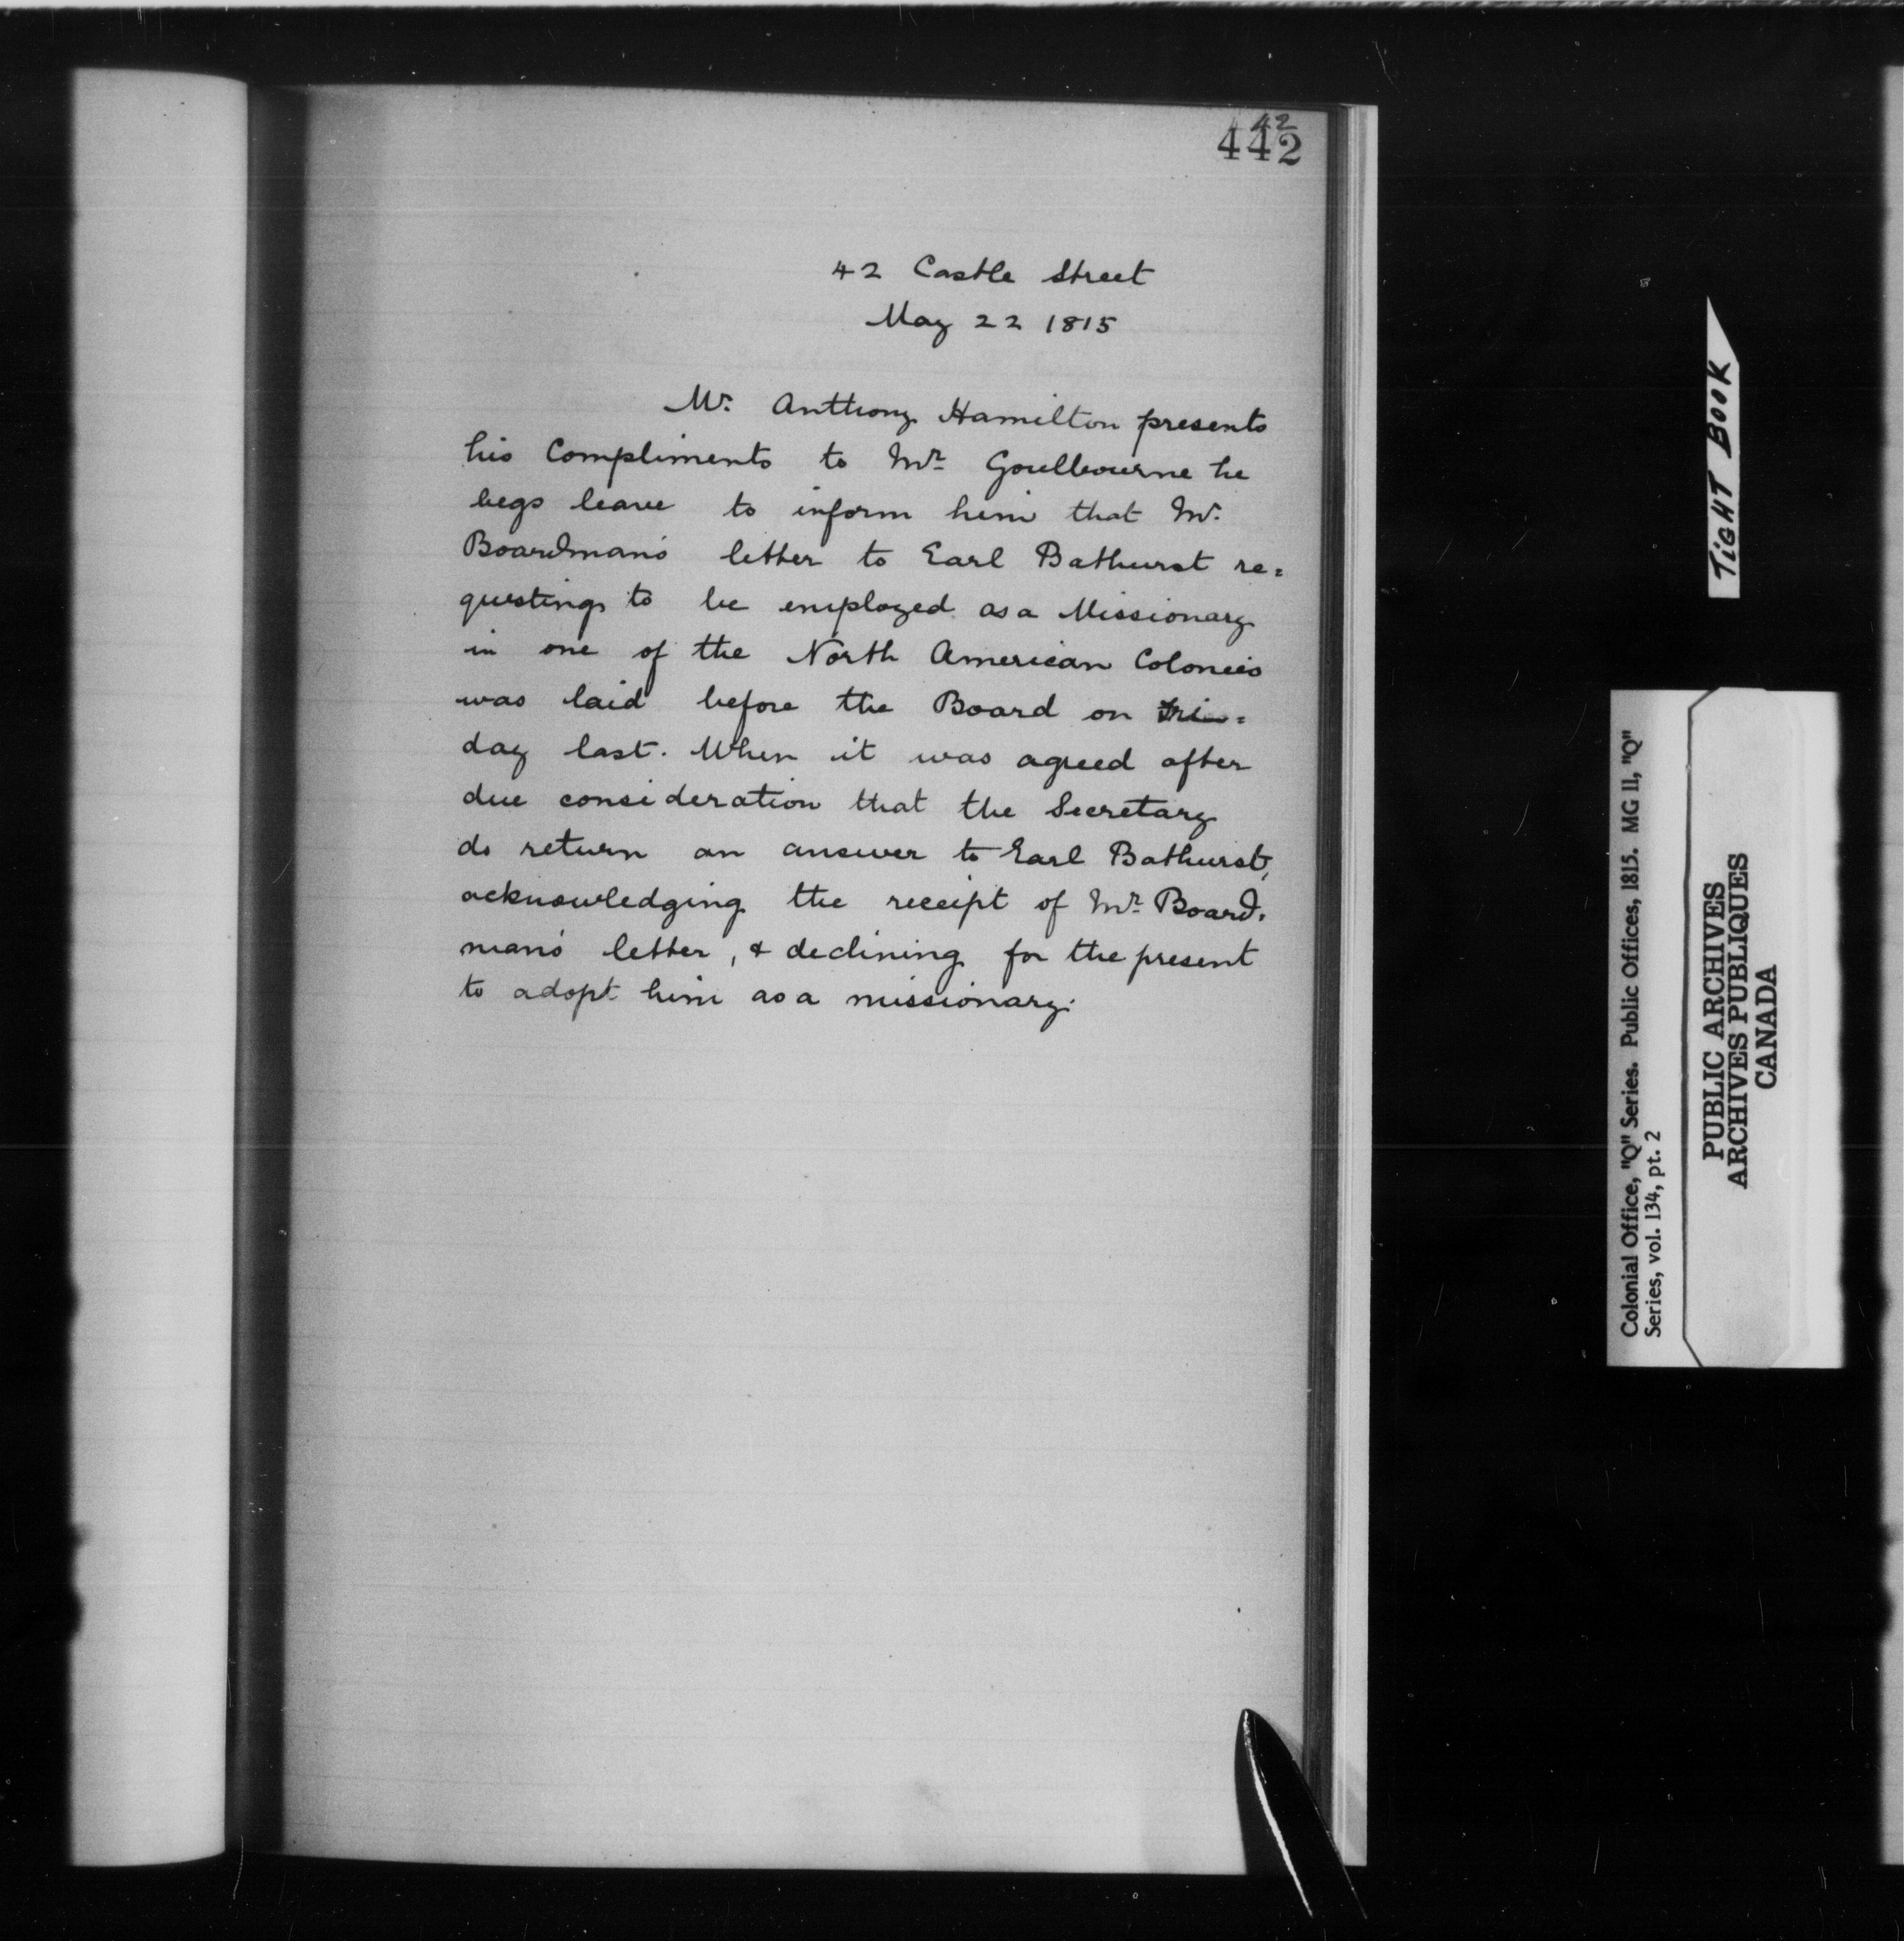 42
442
42 Castle Street
May 22 1815
Mr. Anthony Hamilton presents
his Compliments to Mr. Goulbourne he
begs leave to inform him that Mr.
Boardman's letter to Earl Bathurst re=
questing to be employed as a Missionary
in one of the North American Colonies
was laid before the Board on Fri=
day last. When it was agreed after
due consideration that the Secretary
do return an answer to Earl Bathurst,
acknowledging the receipt of Mr. Board.
man's letter, & declining for the present
to adopt him as a missionary.
TIGHT BOOK
Colonial Office, "Q" Series. Public Offices, 1815. MG 11, "Q"
Series, vol. 134, pt. 2
PUBLIC ARCHIVES
ARCHIVES PUBLIQUES
CANADA